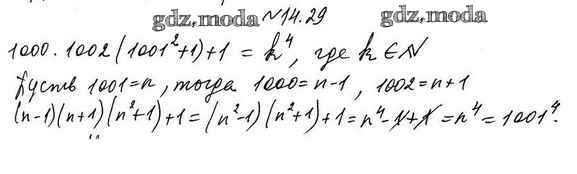 gdz.moda №14.29 gdz.moda
1000·1002(1001²+1)+1 = k⁴, где k∈N
Пусть 1001=n, тогда 1000=n-1, 1002=n+1
(n-1)(n+1)(n²+1)+1=(n²-1)(n²+1)+1=n⁴-1+1=n⁴=1001⁴.